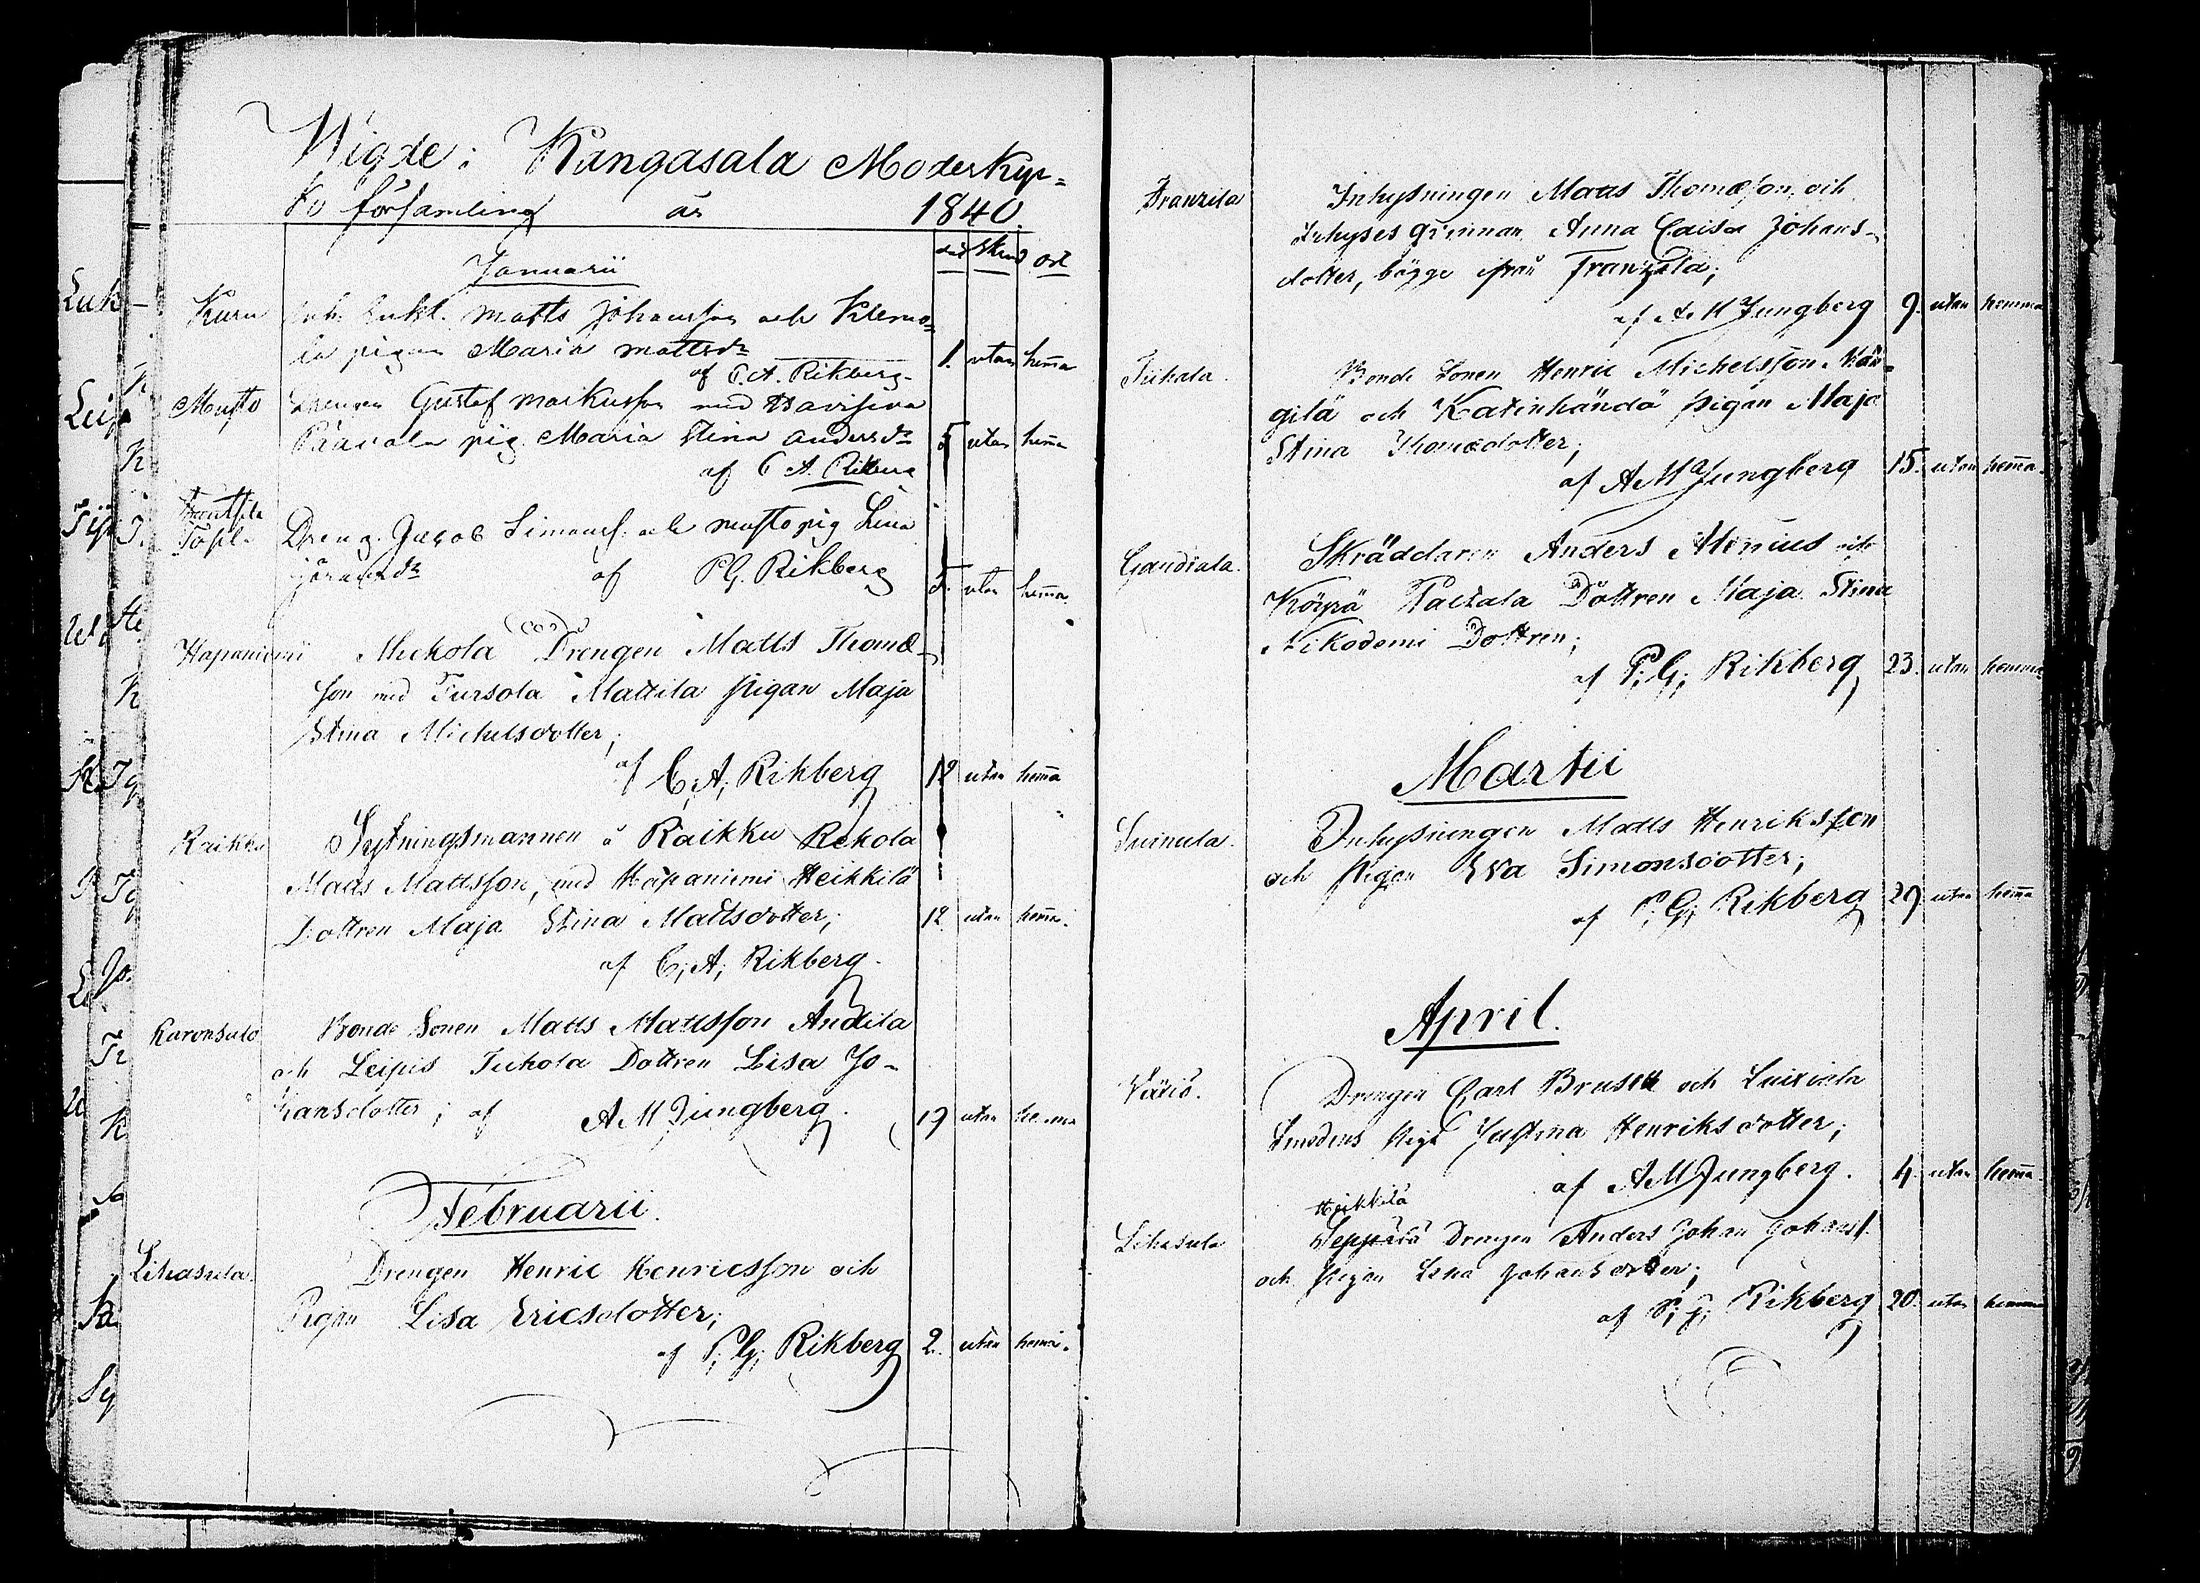 Wigde i Kangasala Moderkyr=
ko församling år 1840.
dat skud ort
Januarii
Kuru Inh. Enkl. Matts Johansson och Klemo=
la pigan Maria Mattsdr
af C. A. Rikberg 1. utan hema
Musto Drengen Gustaf Markusson med Haviseva
pig. Maria Stina Andersdr 5 utan hema
af C A. Rikberg
Frantsila
Dreng. Jacob Simonss. och Musto pig Lena
Göransdr af P G. Rikberg 5. utan hema.
Hapaniemi Muckola Drengen Matts Thomæ-
son med Tursola Mattila pigan Maja
Stina Michelsdotter;
af C; A; Rikberg 12 utan hema
Raikku Sytningsmannen å Raikku Rekola
Matts Mattsson, med Hapaniemi Heikkilä
Dottren Maja Stina Mattsdotter; 12. utan hema.
af C; A; Rikberg.
Bonde Sonen Matts Mattsson Andila
och Leipis Tuhola Dottren Lisa Jo-
hansdotter; af A M Ljungberg. 19 utan hemma
Februarii.
Lihasula. Drengen Henric Henricsson och
Pigan Lisa Ericsdotter;
af P; G; Rikberg 2. utan hema.
Franzila Inhysningen Matts Thomæson och
Inhyses qvinnan Anna Caisa Johans-
dotter, bägge ifrån Franzila;
af A M Ljungberg 9. utan hemma
Tiihala. Bonde Sonen Henric Michelsson Kän-
gilä och Katinhändä pigan Maja
Stina Thomædotter;
af A M Ljungberg 15. utan hema.
Gaudiala. Skräddaren Anders Alenius och
Köyrä Paltala Dottren Maja Stina
Nikodemi Dottren;
af P; G; Rikberg 23. utan hemma
Martii
Suinula. Inhysningen Matts Henriksson
och Pigan Eva Simonsdotter;
af P; G; Rikberg 29. utan hema
April.
Vääxiö. Drengen Carl Brusck och
Smedens Piga Justina Henriksdotter;
af A M Ljungberg. 4. utan hema.
Heikkilä
Lihasula Seppälä Drengen Anders Johan Johanss.
och Pigan Lena Johansdotter;
af P; G; Rikberg 20. utan hemma